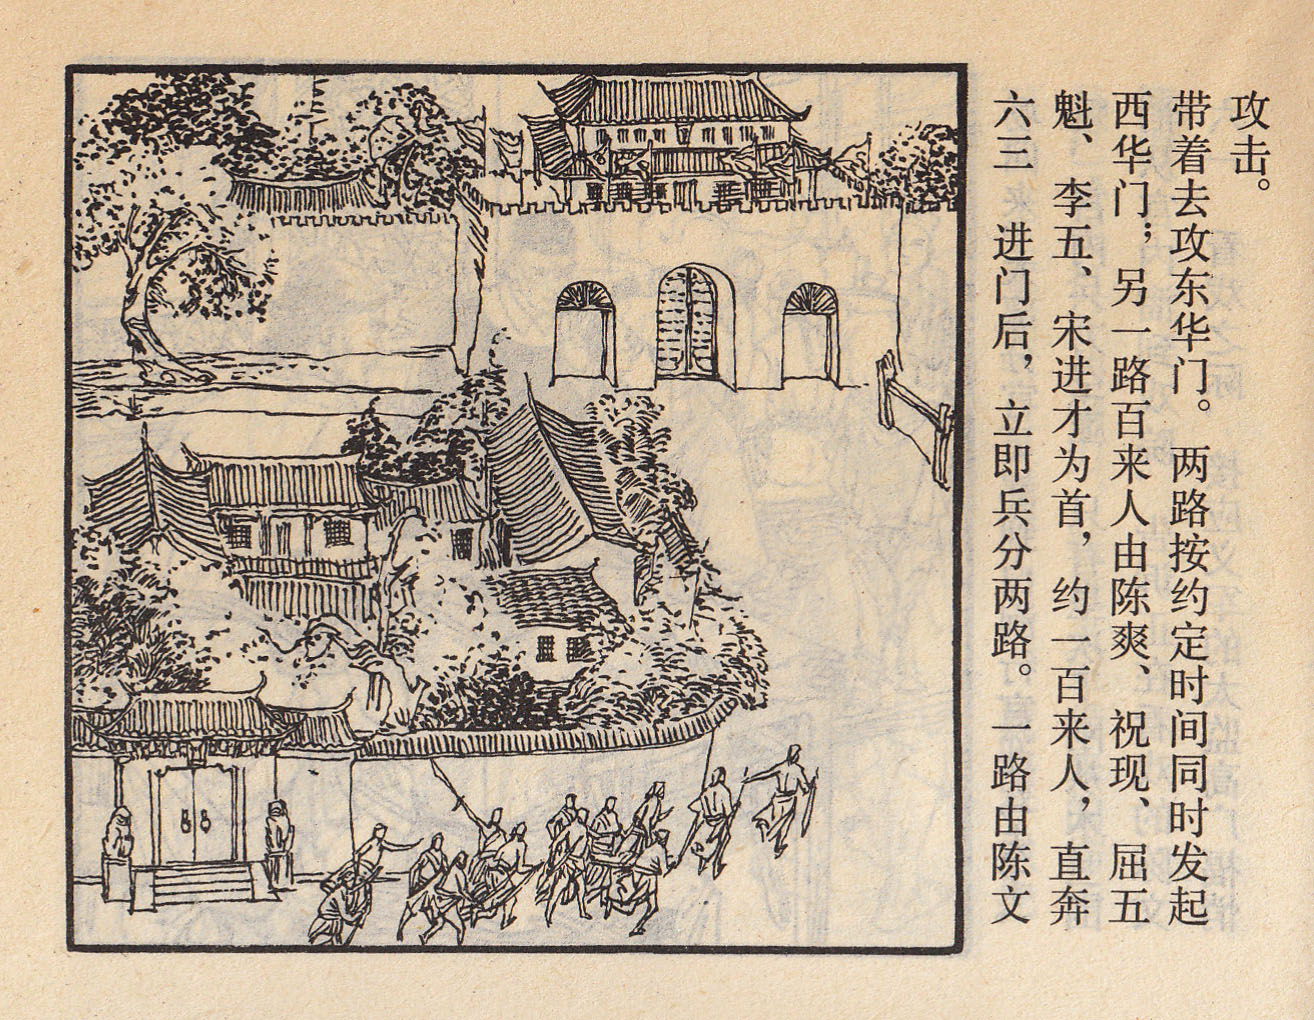 六三　进门后，立即兵分两路。一路由陈文
魁、李五、宋进才为首，约一百来人，直奔
西华门；另一路百来人由陈爽、祝现、屈五
带着去攻东华门。两路按约定时间同时发起
攻击。